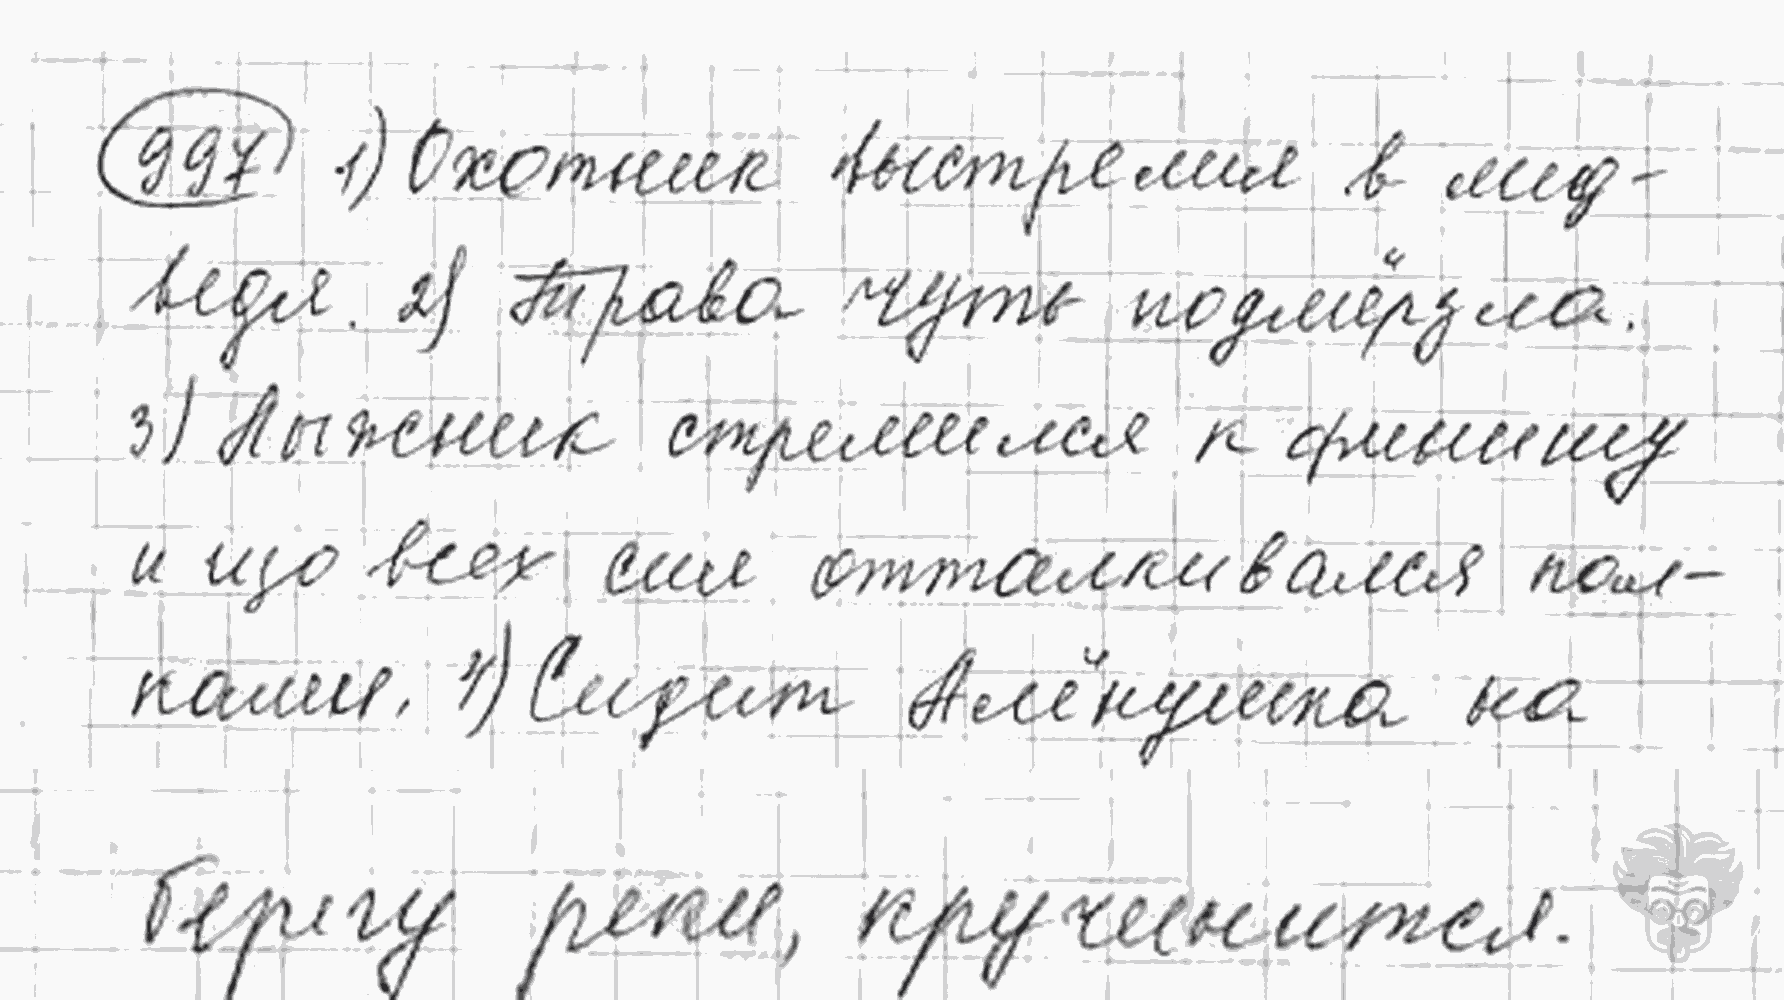 997 1) Охотник выстрелил в мед-
ведя. 2) Трава чуть подмёрзла.
3) Лыжник стремился к финишу
и изо всех сил отталкивался пал-
ками. 4) Сидит Алёнушка на
берегу реки, кручинится.